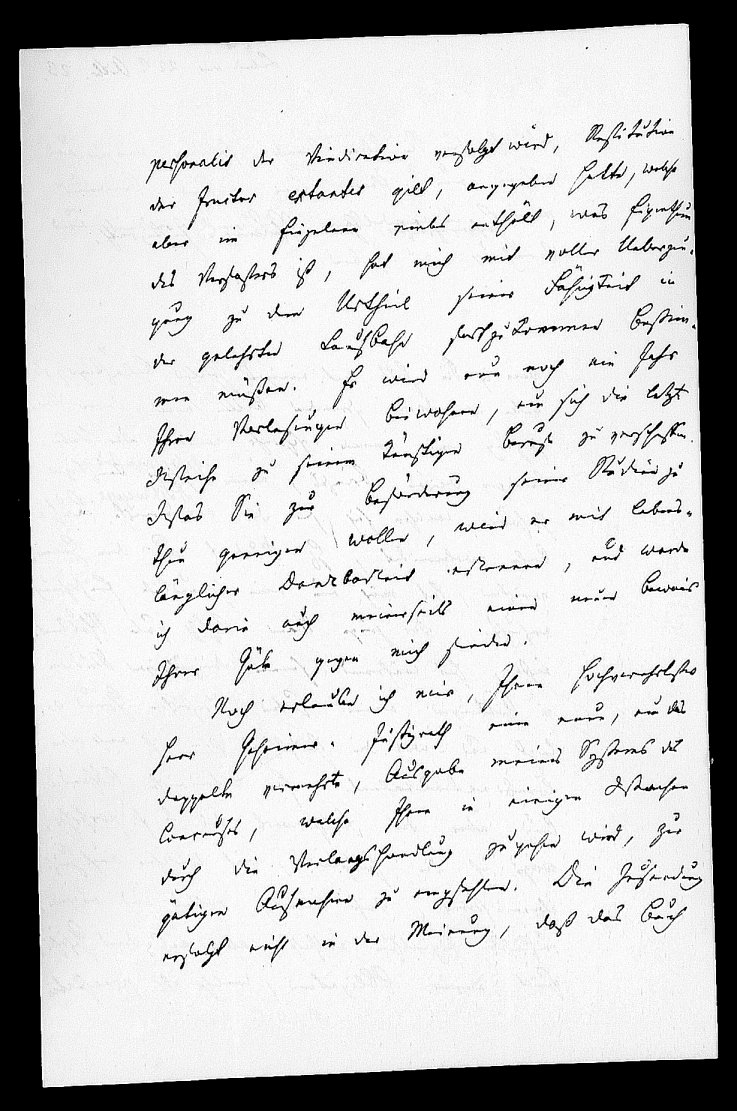 personalis der Vindication verfolgt wird, Restitution
der fructus extantes gilt, angegeben hatte, welche
aber im Einzelnen vieles enthält, was Eigenthum
des Verfassers ist, hat mich mit voller Ueberzeu-
gung zu dem Urtheil seiner Fähigkeit in
der gelehrten Laufbahn fortzukommen bestim-
men müssen. Er wird nun noch ein Jahr
Ihren Vorlesungen beiwohnen, um sich die letzte
Weihe zu seinem künftigen Beruf zu verschaffen.
Etwas Sie zur Beförderung seiner Studien zu
thun geneigen wollen, wird er mit lebens-
länglicher Dankbarkeit erkennen, und werde
ich darin auch meinerseits einen neuen Beweis
Ihrer Güte gegen mich finden.
Noch erlaube ich mir, Ihnen Hochverehrtester
Herr Geheimer-Justizrath eine neue, um das
doppelte vermehrte, Ausgabe meines Systems des
Concurses, welche Ihnen in einigen Wochen
durch die Verlagshandlung zugehen wird, zur
gütigen Aufnahme zu empfehlen. Die Zusendung
erfolgt nicht in der Meinung, daß das Buch